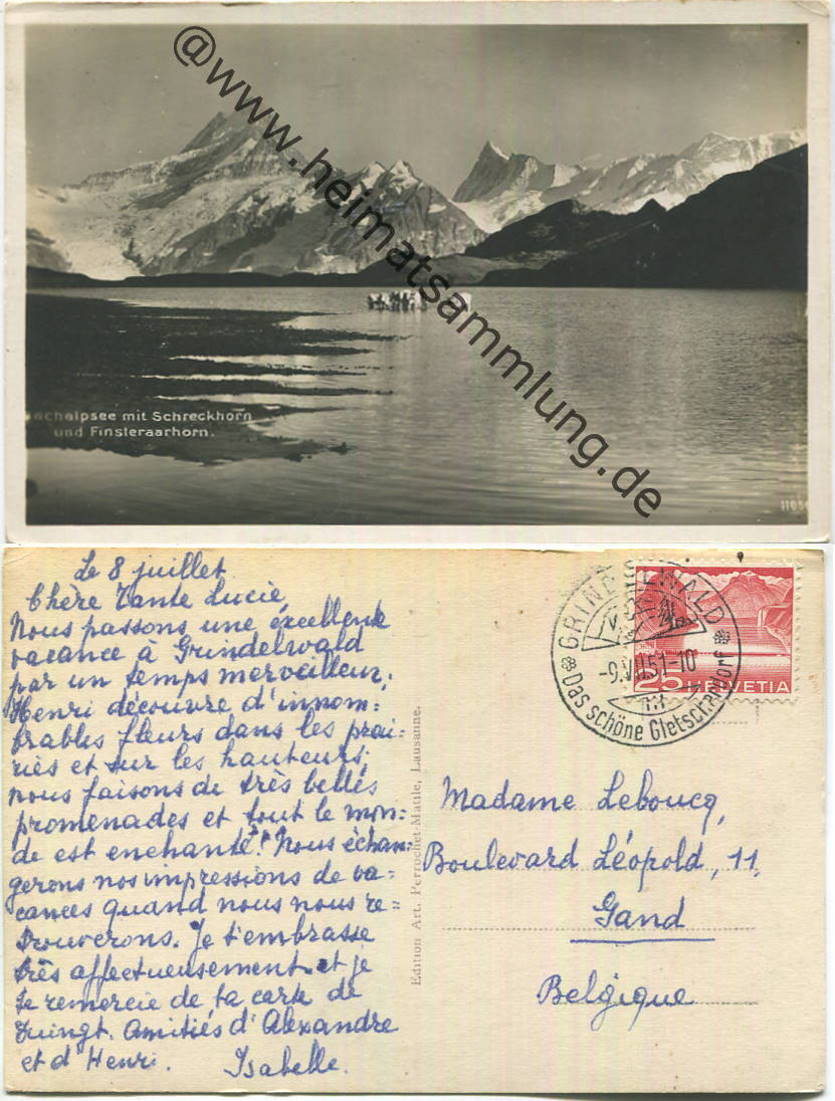 @www.heimatsammlung.de
achalpsee mit Schreckhorn
und Finsteraarhorn.
Le 8 juillet
Chère Tante Lucie,
Nous passons une excellente
vacance à Grindelwald
par un temps merveilleux;
Henri découvre d'innom=
brables fleurs dans les prai=
ries et sur les hauteurs;
nous faisons de très belles
promenades et tout le mon=
de est enchanté! Nous échan=
gerons nos impressions de va=
cances quand nous nous re=
trouverons. Je t'embrasse
très affectueusement et je
te remercie de ta carte de
Amitiés d'Alexandre
et d'Henri. Isabelle.
Edition Art. Perrochet-Matile, Lausanne.
GRINDELWALD
-9.VII.51-10
Das schöne Gletscherdorf
25 HELVETIA
Madame Leboucq,
Boulevard Léopold, 11,
Gand
Belgique